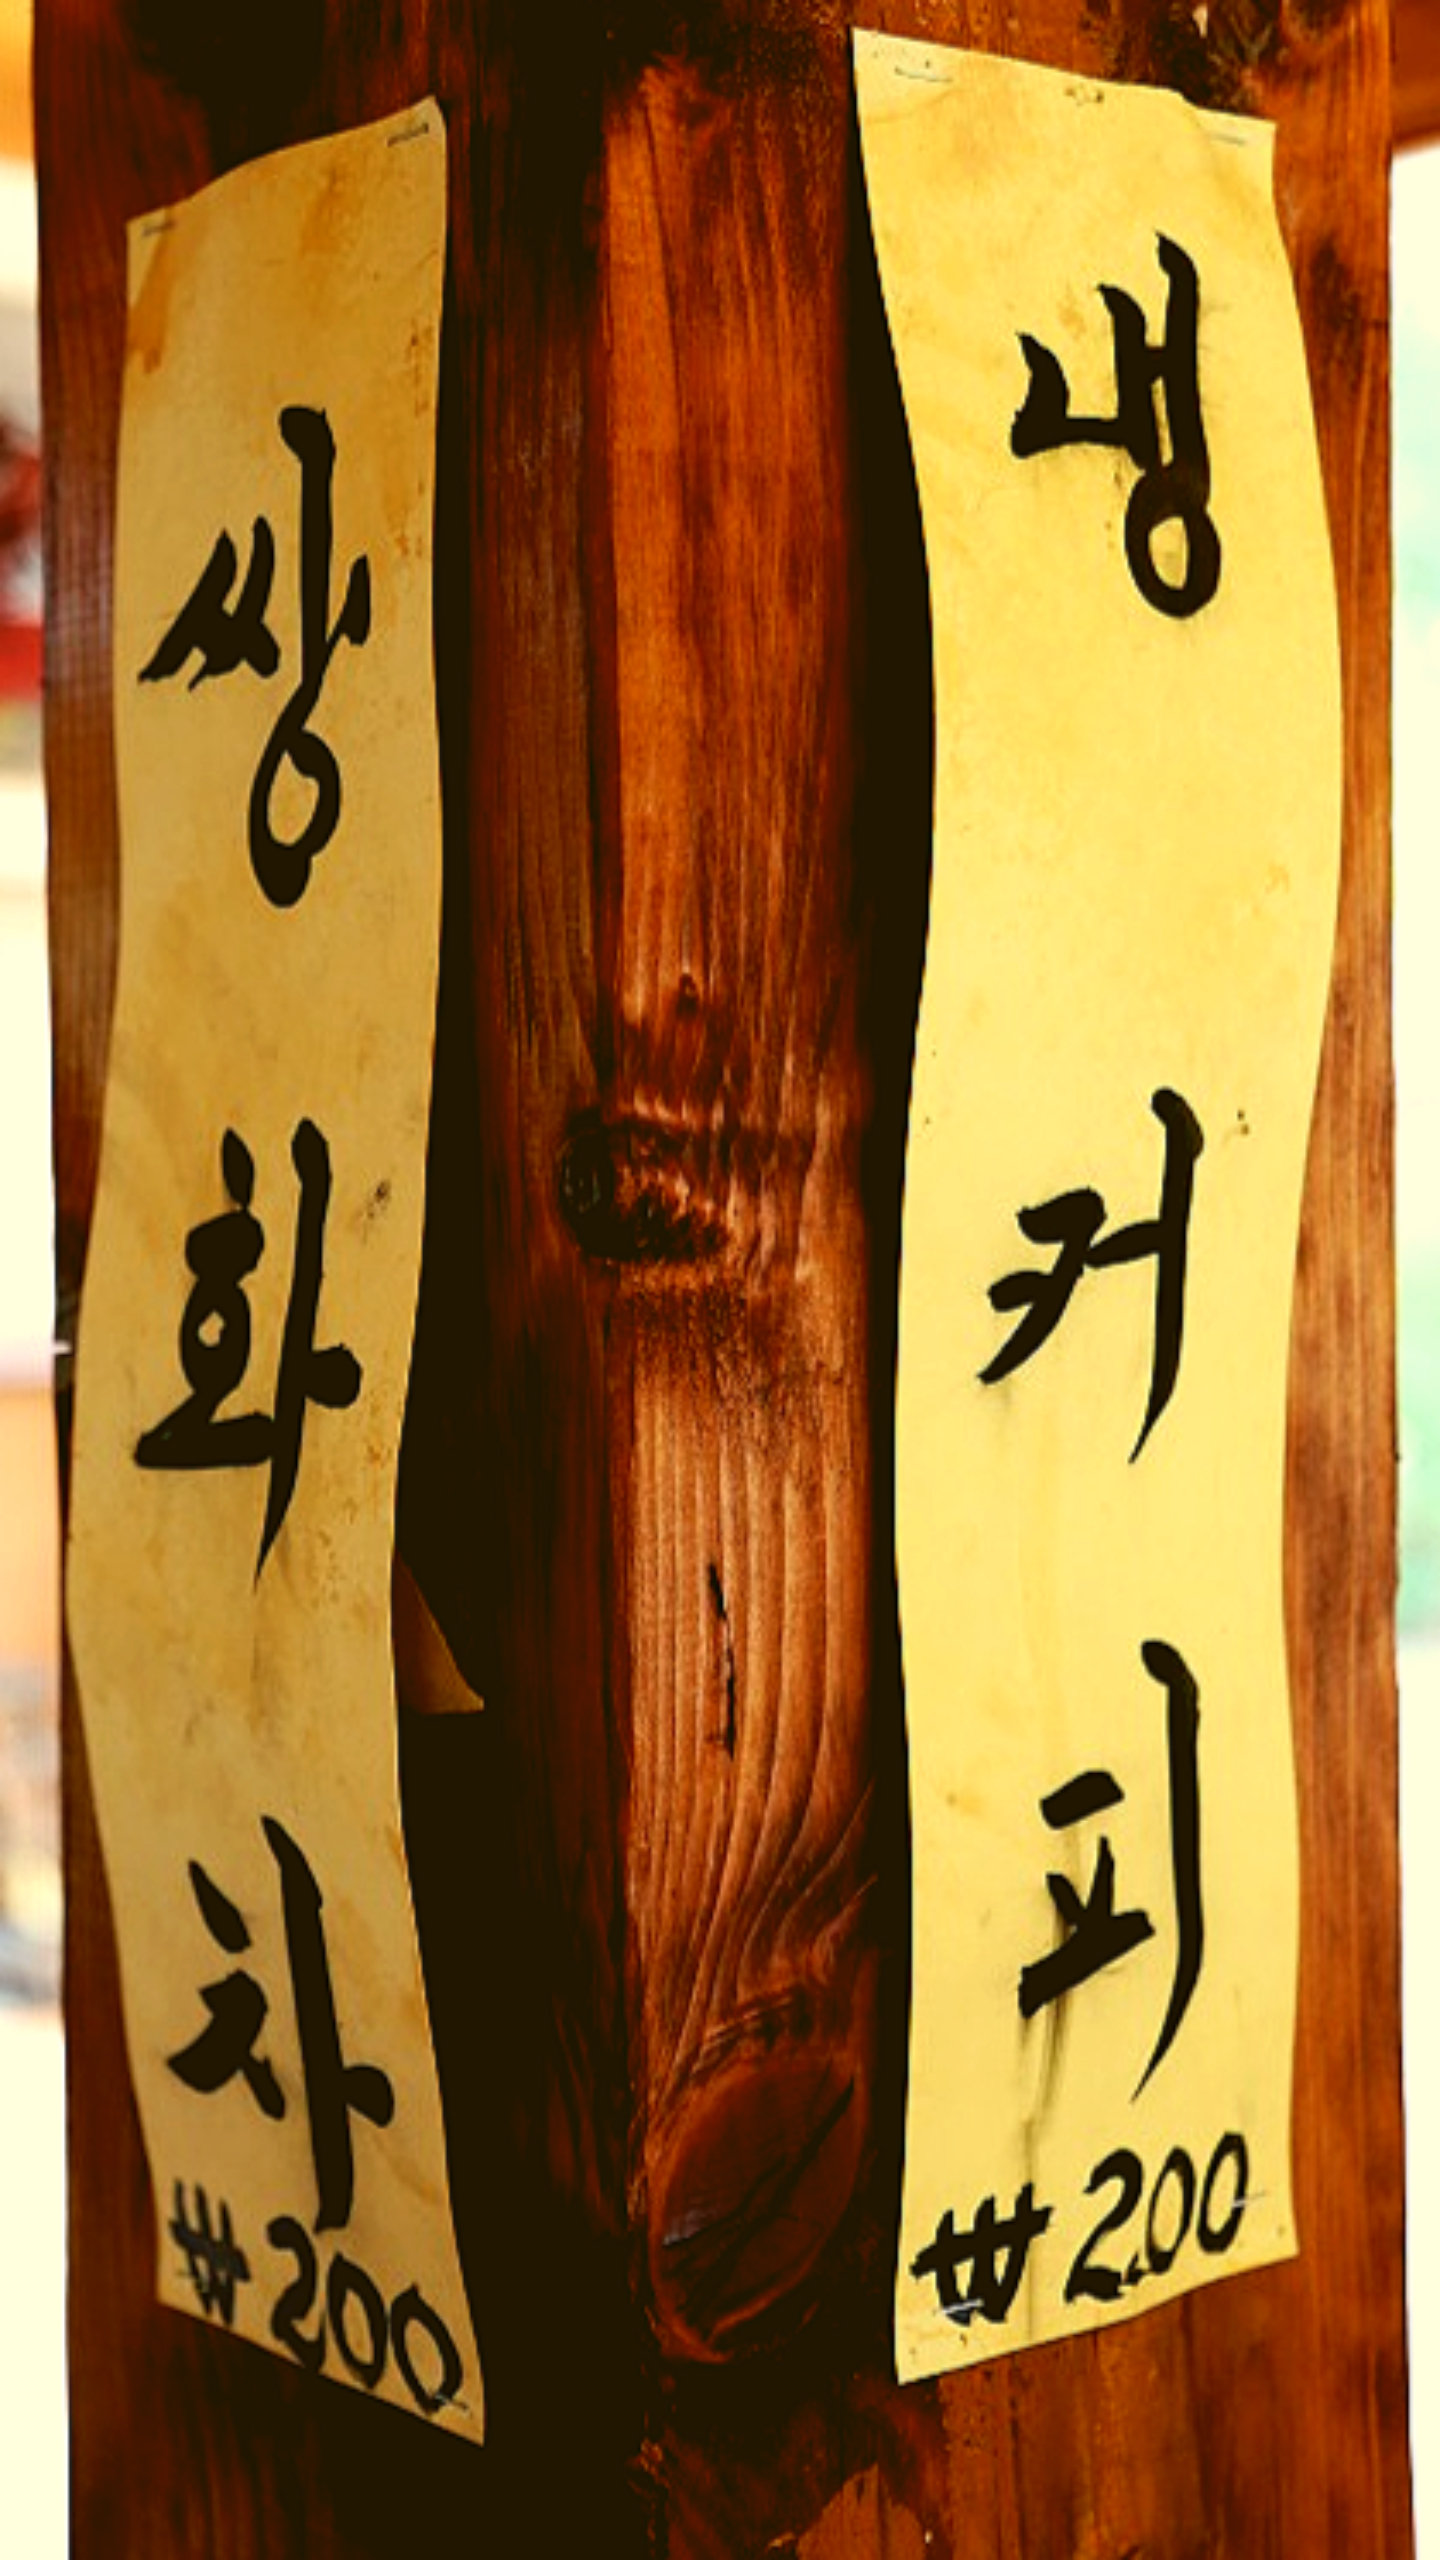 쌍화차
₩200
냉커피
₩200